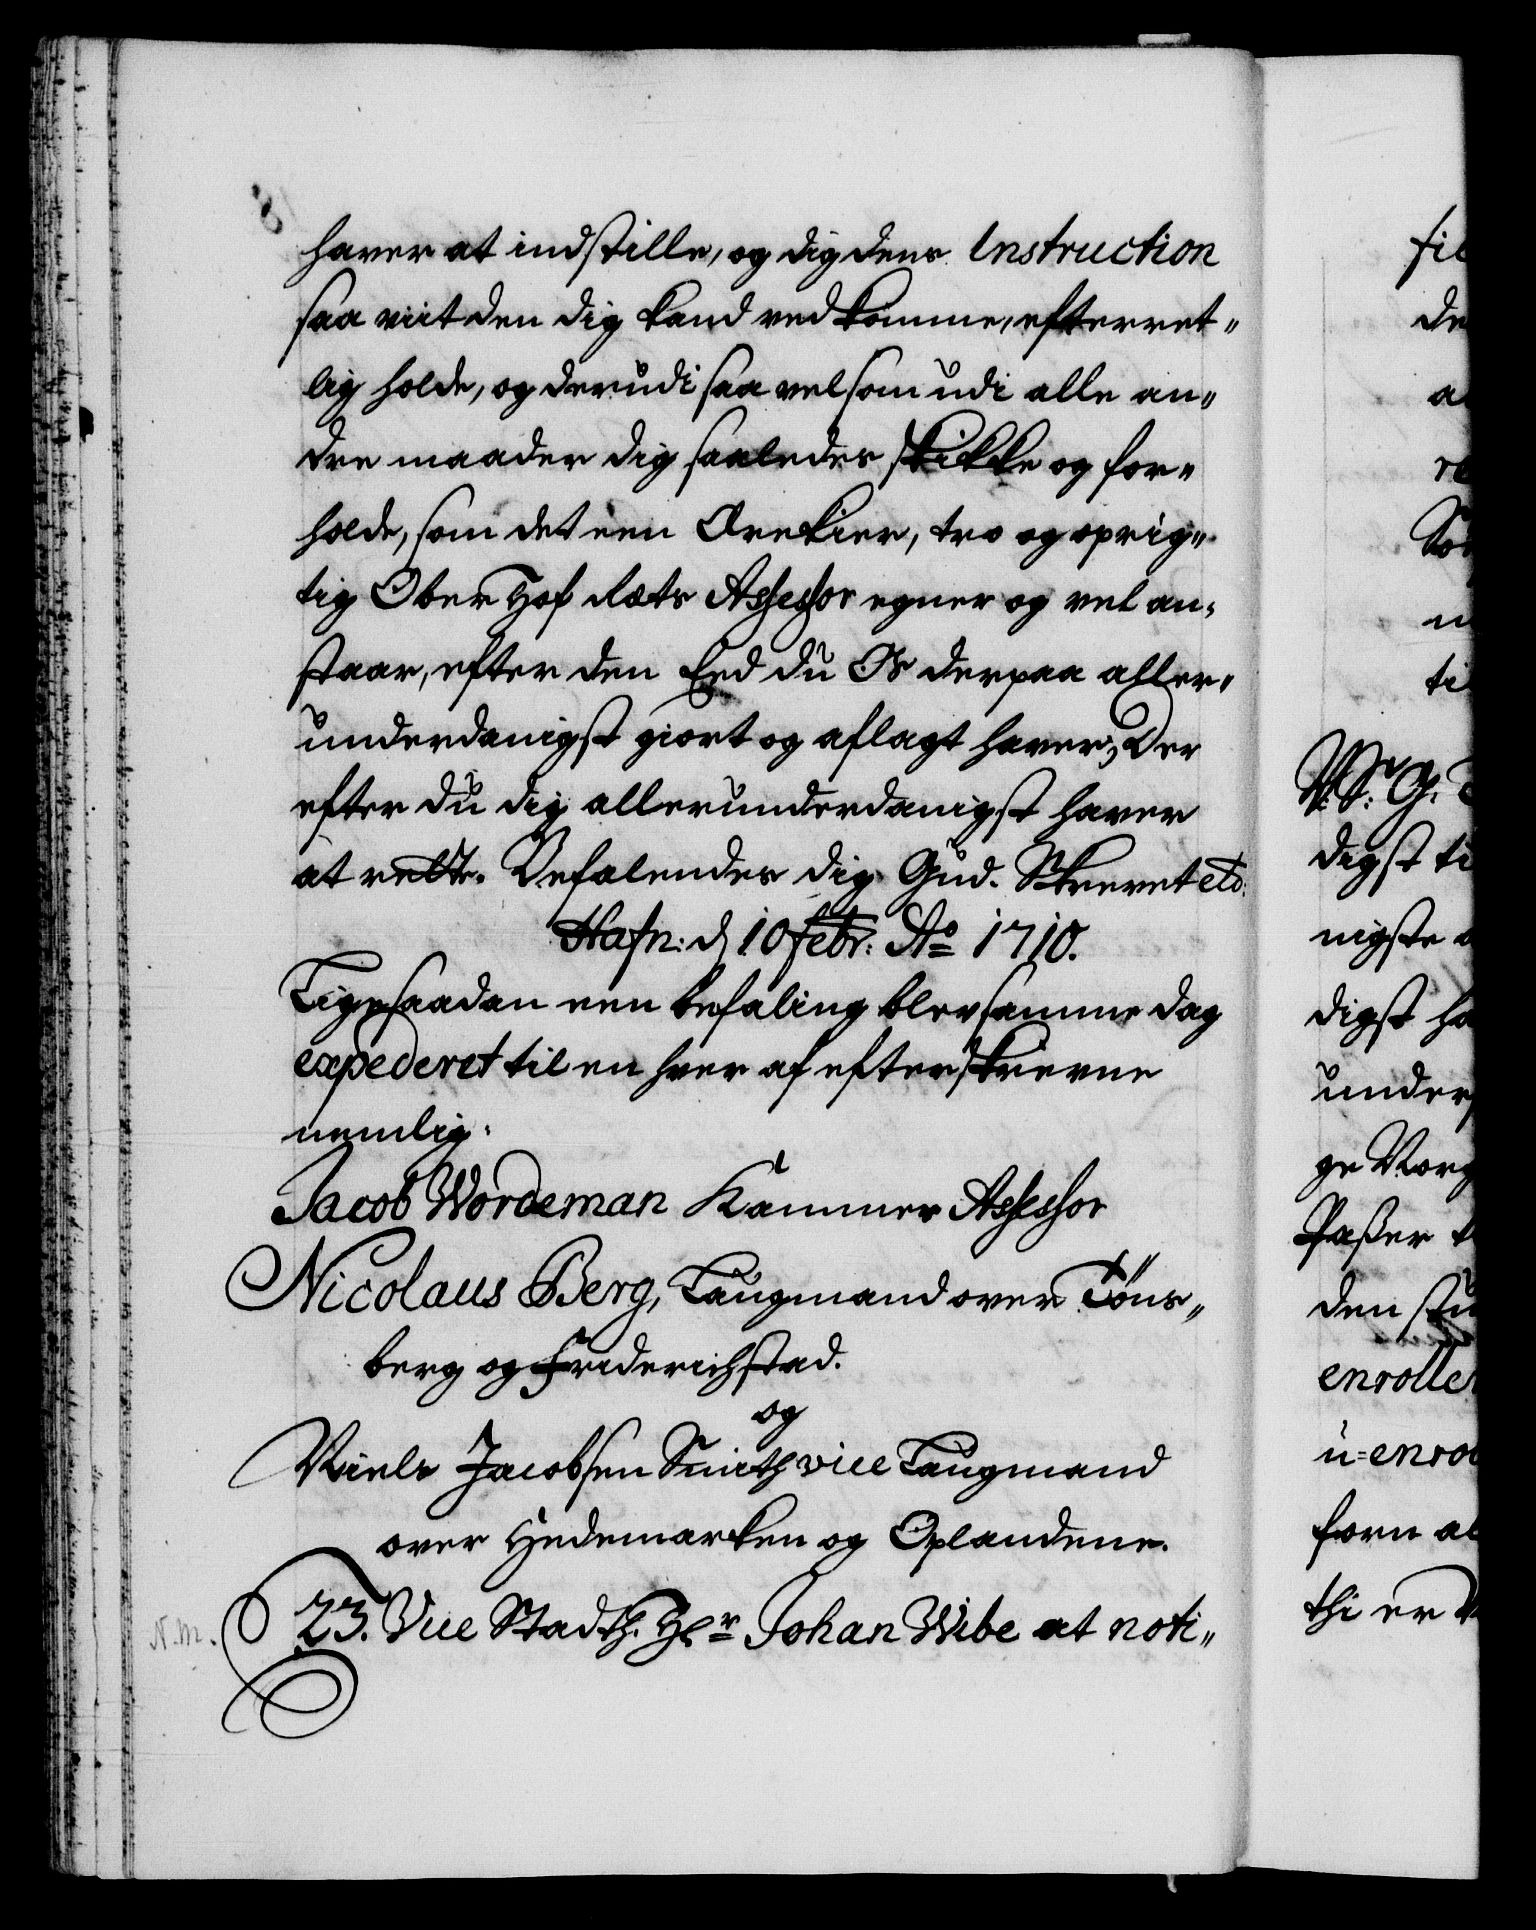 haver at indstille, og dig dens Instruction
saa viit den dig kand vedkomme, efterret„
lig holde, og derudi saa vel som udi alle an„
dre maader dig saaledes skikke og for„
holde, som det een Ærekier, tro og oprig„
tig Ober Hof Rets Assessor egner og vel an„
staar, efter den Eed du Os derpaa aller„
underdanigst giort og aflagt haver, Der
efter du dig allerunderdanigst haver
at rette. Befalendes dig Gud. Skrevet etc:
Hafn: d 10 febr: Ao 1710.
Ligesaadan een befaling blev samme dag
expederet til en hver af efterskrevne
nemlig.
Jacob Wordeman Kammer Assessor
Nicolaus Berg, Laugmand over Töns„
berg og Friderichstad.
og
Niels Jacobsen Smith vice Laugmand
over Hedemarken og Oplandene.
N.m. 23. Vice Stadth. Hr Johan Wibe at noti„
fic
de
a
re
So
n
ti
digst ti
nigste
digst ha
under
ge Norg
Paßer t
den stu
enrolle
u=enrol
forn al
thi er V